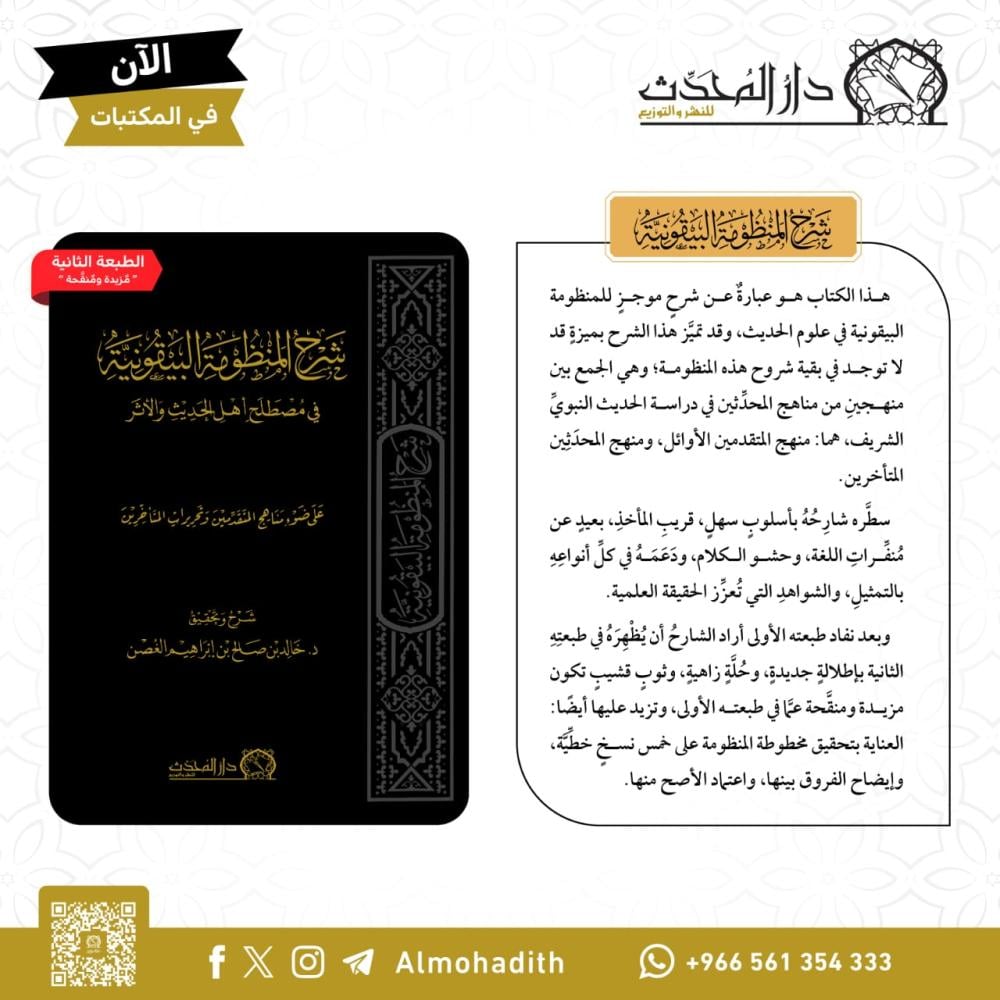 الآن
في المكتبات
دار المُحَدِّث
للنشر والتوزيع
شَرْحُ المَنْظُومَةِ البَيْقُونِيَّةِ
هـذا الكتاب هـو عبارةٌ عـن شرحٍ موجـزٍ للمنظومة
البيقونية في علوم الحديث، وقد تميَّز هذا الشرح بميزةٍ قد
لا توجـد في بقية شروح هذه المنظومـة؛ وهي الجمع بين
منهـجينِ من مناهج المحدِّثين في دراسـة الحديث النبويِّ
الشريف، هما: منهج المتقدمين الأوائل، ومنهج المحدَثِين
المتأخرين.
سطَّره شارِحُهُ بأسلوبٍ سهلٍ، قريبِ المأخذِ، بعيدٍ عن
مُنفِّـراتِ اللغة، وحشـو الـكلام، ودَعَمَـهُ في كلِّ أنواعِهِ
بالتمثيلِ، والشواهدِ التي تُعزِّز الحقيقة العلمية.
وبعد نفاد طبعته الأولى أراد الشارحُ أن يُظْهِرَهُ في طبعتِهِ
الثانية بإطلالةٍ جديدةٍ، وحُلَّةٍ زاهيةٍ، وثوبٍ قشيبٍ تكون
مزيـدة ومنقَّحة عمَّا في طبعتـه الأولى، وتزيد عليها أيضًا:
العناية بتحقيق مخطوطة المنظومة على خمس نسـخٍ خطِّيَّة،
وإيضاح الفروق بينها، واعتماد الأصح منها.
الطبعة الثانية
" مَزيدة ومُنقَّحة "
شَرْحُ المَنْظُومَةِ البَيْقُونِيَّةِ
في مُصْطَلَحِ أَهْلِ الحَدِيثِ وَالأَثَرِ
عَلَى ضَوْءِ مَنَاهِجِ المُتَقَدِّمِينَ وَتَحْرِيرَاتِ المُتَأَخِّرِينَ
شَرْحُ وَتَحْقِيقُ
د. خَالِد بن صَالِح بن إِبْرَاهِيم الغُصْن
شَرْحُ المَنْظُومَةِ البَيْقُونِيَّةِ
دار المُحَدِّث
للنشر والتوزيع
Almohadith
+966 561 354 333